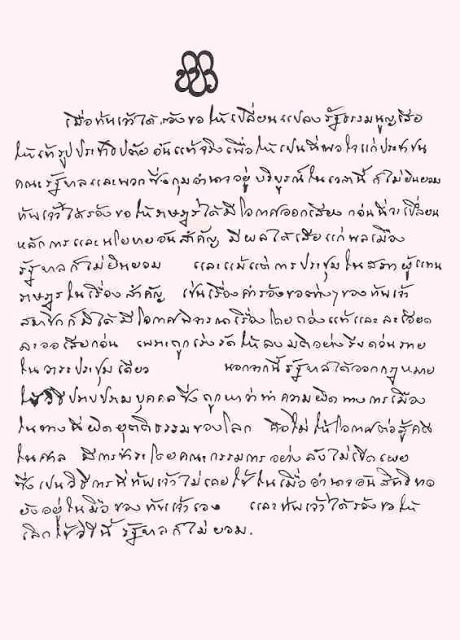 เมื่อข้าพเจ้าได้ร้องขอให้เปลี่ยนแปลงรัฐธรรมนูญเสีย
ให้เข้ารูปประชาธิปตัยอันแท้จริงเพื่อให้เป็นที่พอใจแก่ประชาชน
คณะรัฐบาลและพวกซึ่งกุมอำนาจอยู่บริบูรณ์ในเวลานี้ก็ไม่ยินยอม
ข้าพเจ้าได้ร้องขอให้ราษฎรได้มีโอกาสออกเสียง ก่อนที่จะเปลี่ยน
หลักการและนโยบายอันสำคัญ มีผลได้เสียแก่พลเมือง
รัฐบาลก็ไม่ยินยอม และแม้แต่การประชุมในสภาผู้แทน
ราษฎรในเรื่องสำคัญ เช่นเรื่องคำร้องขอต่างๆของข้าพเจ้า
สมาชิกก็มิได้มีโอกาสพิจารณาเรื่องโดยถ่องแท้และละเอียด
ละออเสียก่อน เพราะถูกเร่งรัดให้ลงมติอย่างรีบด่วนภาย
ในวาระประชุมเดียว นอกจากนี้รัฐบาลได้ออกกฎหมาย
ใช้วิธีปราบปรามบุคคลซึ่งถูกหาว่าทำความผิดทางการเมือง
ในทางที่ผิดยุติธรรมของโลก คือไม่ให้โอกาสต่อสู้คดี
ในศาล มีการชำระโดยคณะกรรมการอย่างลับไม่เปิดเผย
ซึ่งเป็นวิธีการที่ข้าพเจ้าไม่เคยใช้ในเมื่ออำนาจอันสิทธิขาด
ยังอยู่ในมือของข้าพเจ้าเอง และข้าพเจ้าได้ร้องขอให้
เลิกใช้วิธีนี้ รัฐบาลก็ไม่ยอม.